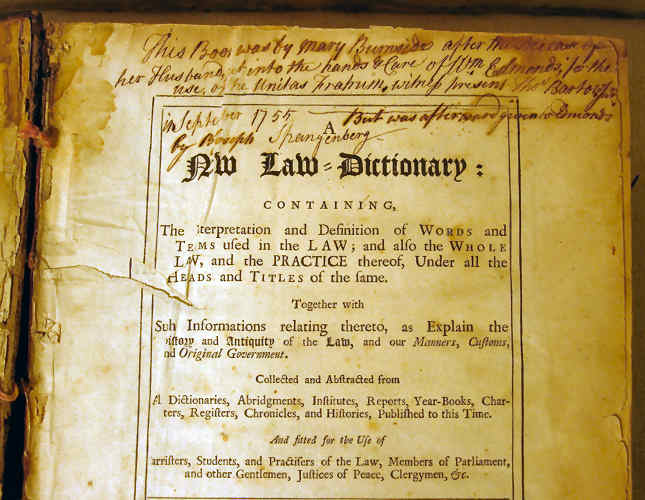 This Book was by Mary Burnside after the decease of
her Husband, put into the hands & Care of Wm. Edmonds, for the
use, of the Unitas Fratrum, witness present Thos.
in September 1755. But was afterward given to Edmonds
by Bisoph Spangenberg
A
Nw Law-Dictionary:
CONTAINING,
The terpretation and Definition of WORDS and
TEMS used in the LAW; and also the WHOLE
LAW, and the PRACTICE thereof, Under all the
HEADS and TITLES of the same.
Together with
Suh Informations relating thereto, as Explain the
istory and Antiquity of the Law, and our Manners, Customs,
nd Original Government.
Collected and Abstracted from
l Dictionaries, Abridgments, Institutes, Reports, Year-Books, Char-
ters, Registers, Chronicles, and Histories, Published to this Time.
And fitted for the Use of
arristers, Students, and Practisers of the Law, Members of Parliament,
and other Gentlemen, Justices of Peace, Clergymen, &c.